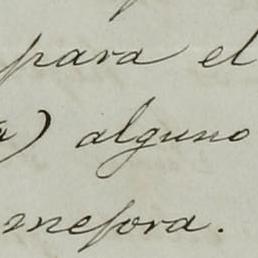 para el
a) alguno
mejora.